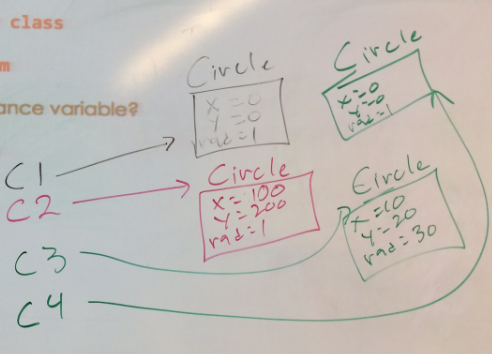 class
m
ance variable?
Circle
x=0
y=0
rad=1
Circle
x=0
y=0
rad=1
C1
C2
Circle
x=100
y=200
rad=1
Circle
x=10
y=20
rad=30
C3
C4